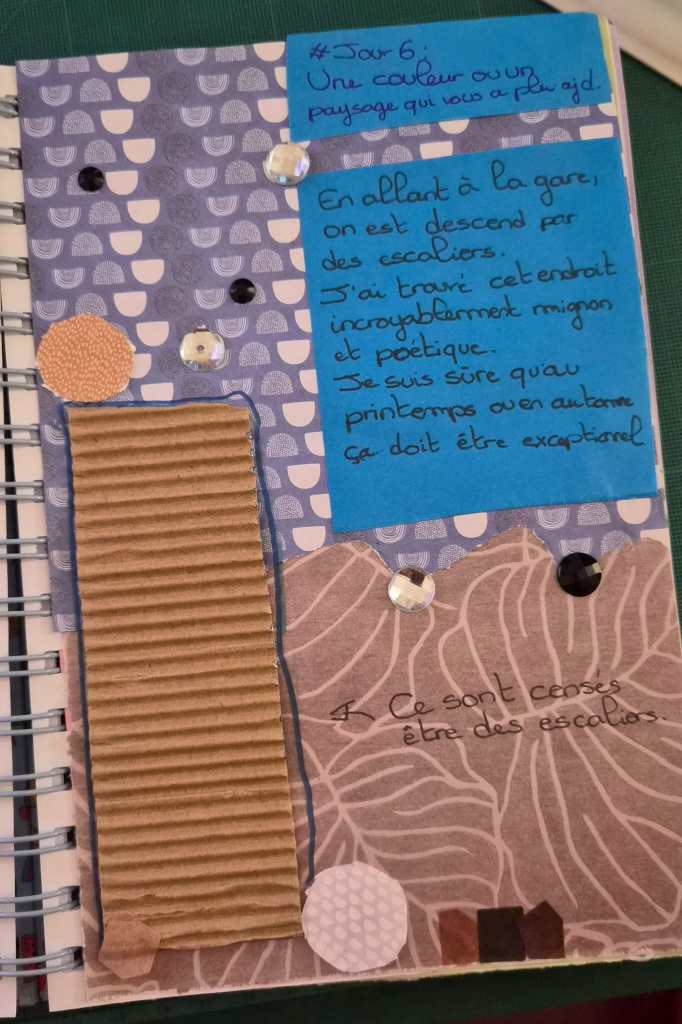 #Jour 6 :
Une couleur ou un
paysage qui vous a plu ajd.
En allant à la gare,
on est descend par
des escaliers.
J'ai trouvé cet endroit
incroyablement mignon
et poétique.
Je suis sûre qu'au
printemps ou en automne
ça doit être exceptionnel
Ce sont censés
être des escaliers.